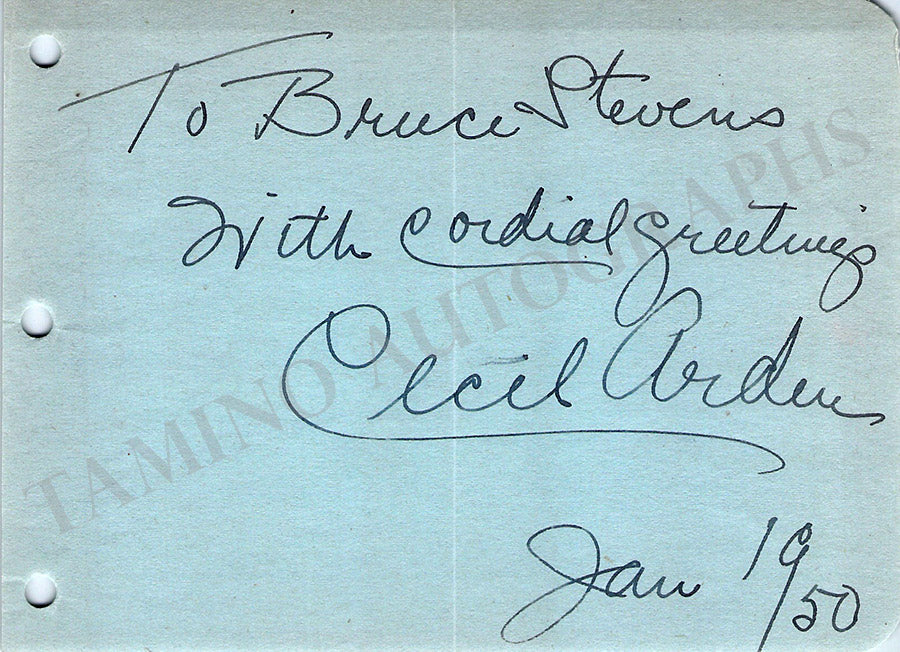 To Bruce Stevens
With cordial greetings
Cecil Arden
Jan 19/50
TAMINO AUTOGRAPHS